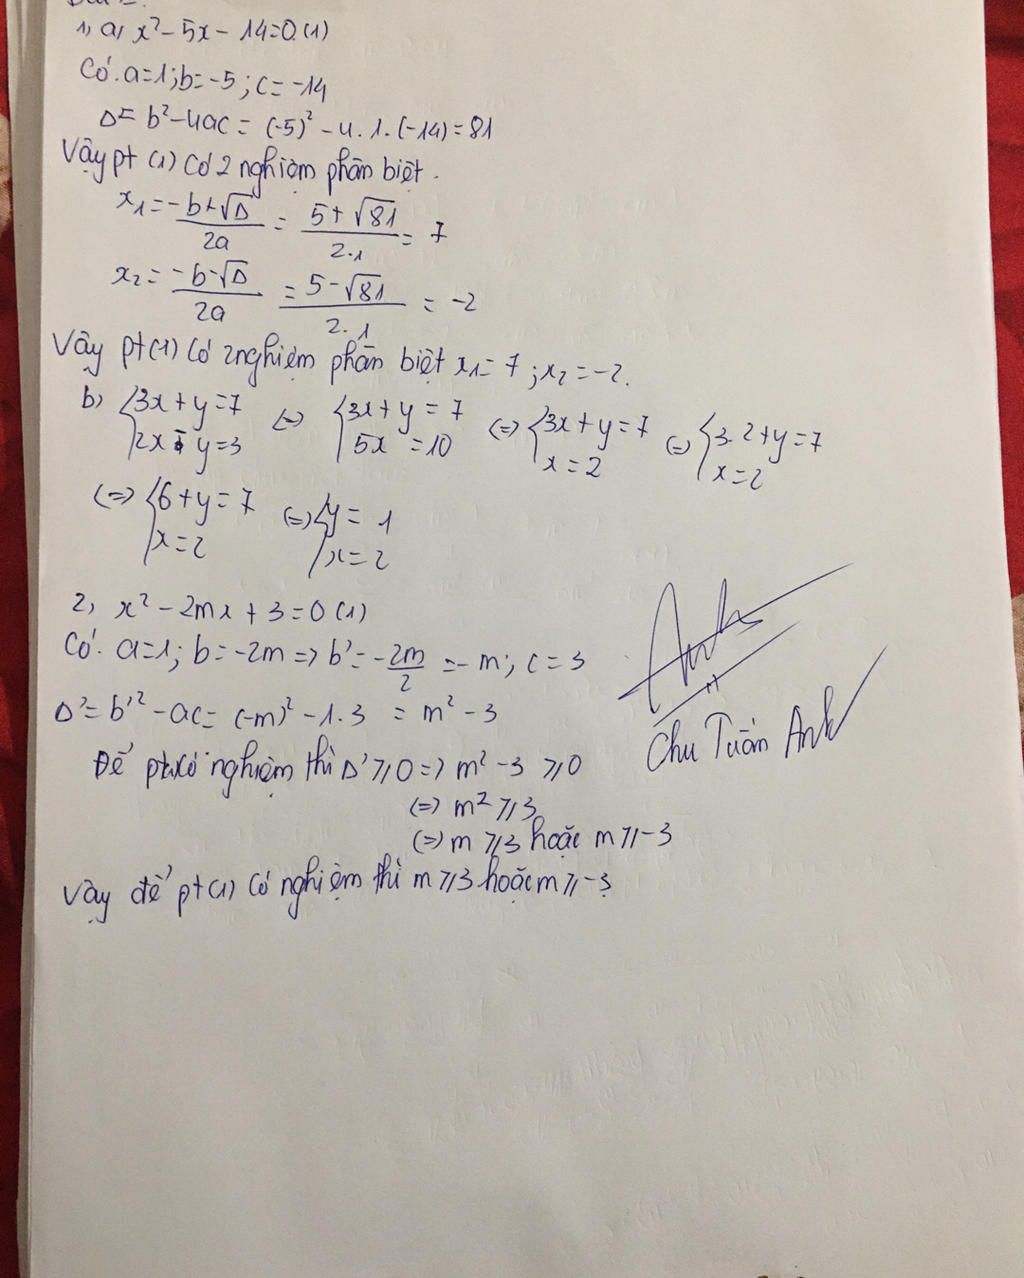 1, a, x² - 5x - 14 = 0 (1)
Có. a=1; b= -5; c= -14
Δ = b² - 4ac = (-5)² - 4. 1. (-14) = 81
Vậy pt (1) có 2 nghiệm phân biệt.
x₁ = (-b+√Δ)/2a = (5+√81)/2.1 = 7
x₂ = (-b-√Δ)/2a = (5-√81)/2.1 = -2
Vậy pt (1) có 2 nghiệm phân biệt x₁ = 7; x₂ = -2.
b, {3x+y=7 2x-y=3 <=> {3x+y = 7 5x = 10 <=> {3x+y=7 x=2 <=> {3.2+y=7 x=2
<=> {6+y=7 x=2 <=> {y = 1 x=2
2, x² - 2mx + 3 = 0 (1)
Có. a=1; b= -2m => b' = -2m/2 = -m; c = 3
Δ' = b'² - ac = (-m)² - 1.3 = m² - 3
Để pt có nghiệm thì Δ' ≥ 0 => m² - 3 ≥ 0
<=> m² ≥ 3
<=> m ≥ 3 hoặc m ≥ -3
Vậy để pt (1) có nghiệm thì m ≥ 3 hoặc m ≥ -3
Anh
Chu Tuấn Anh